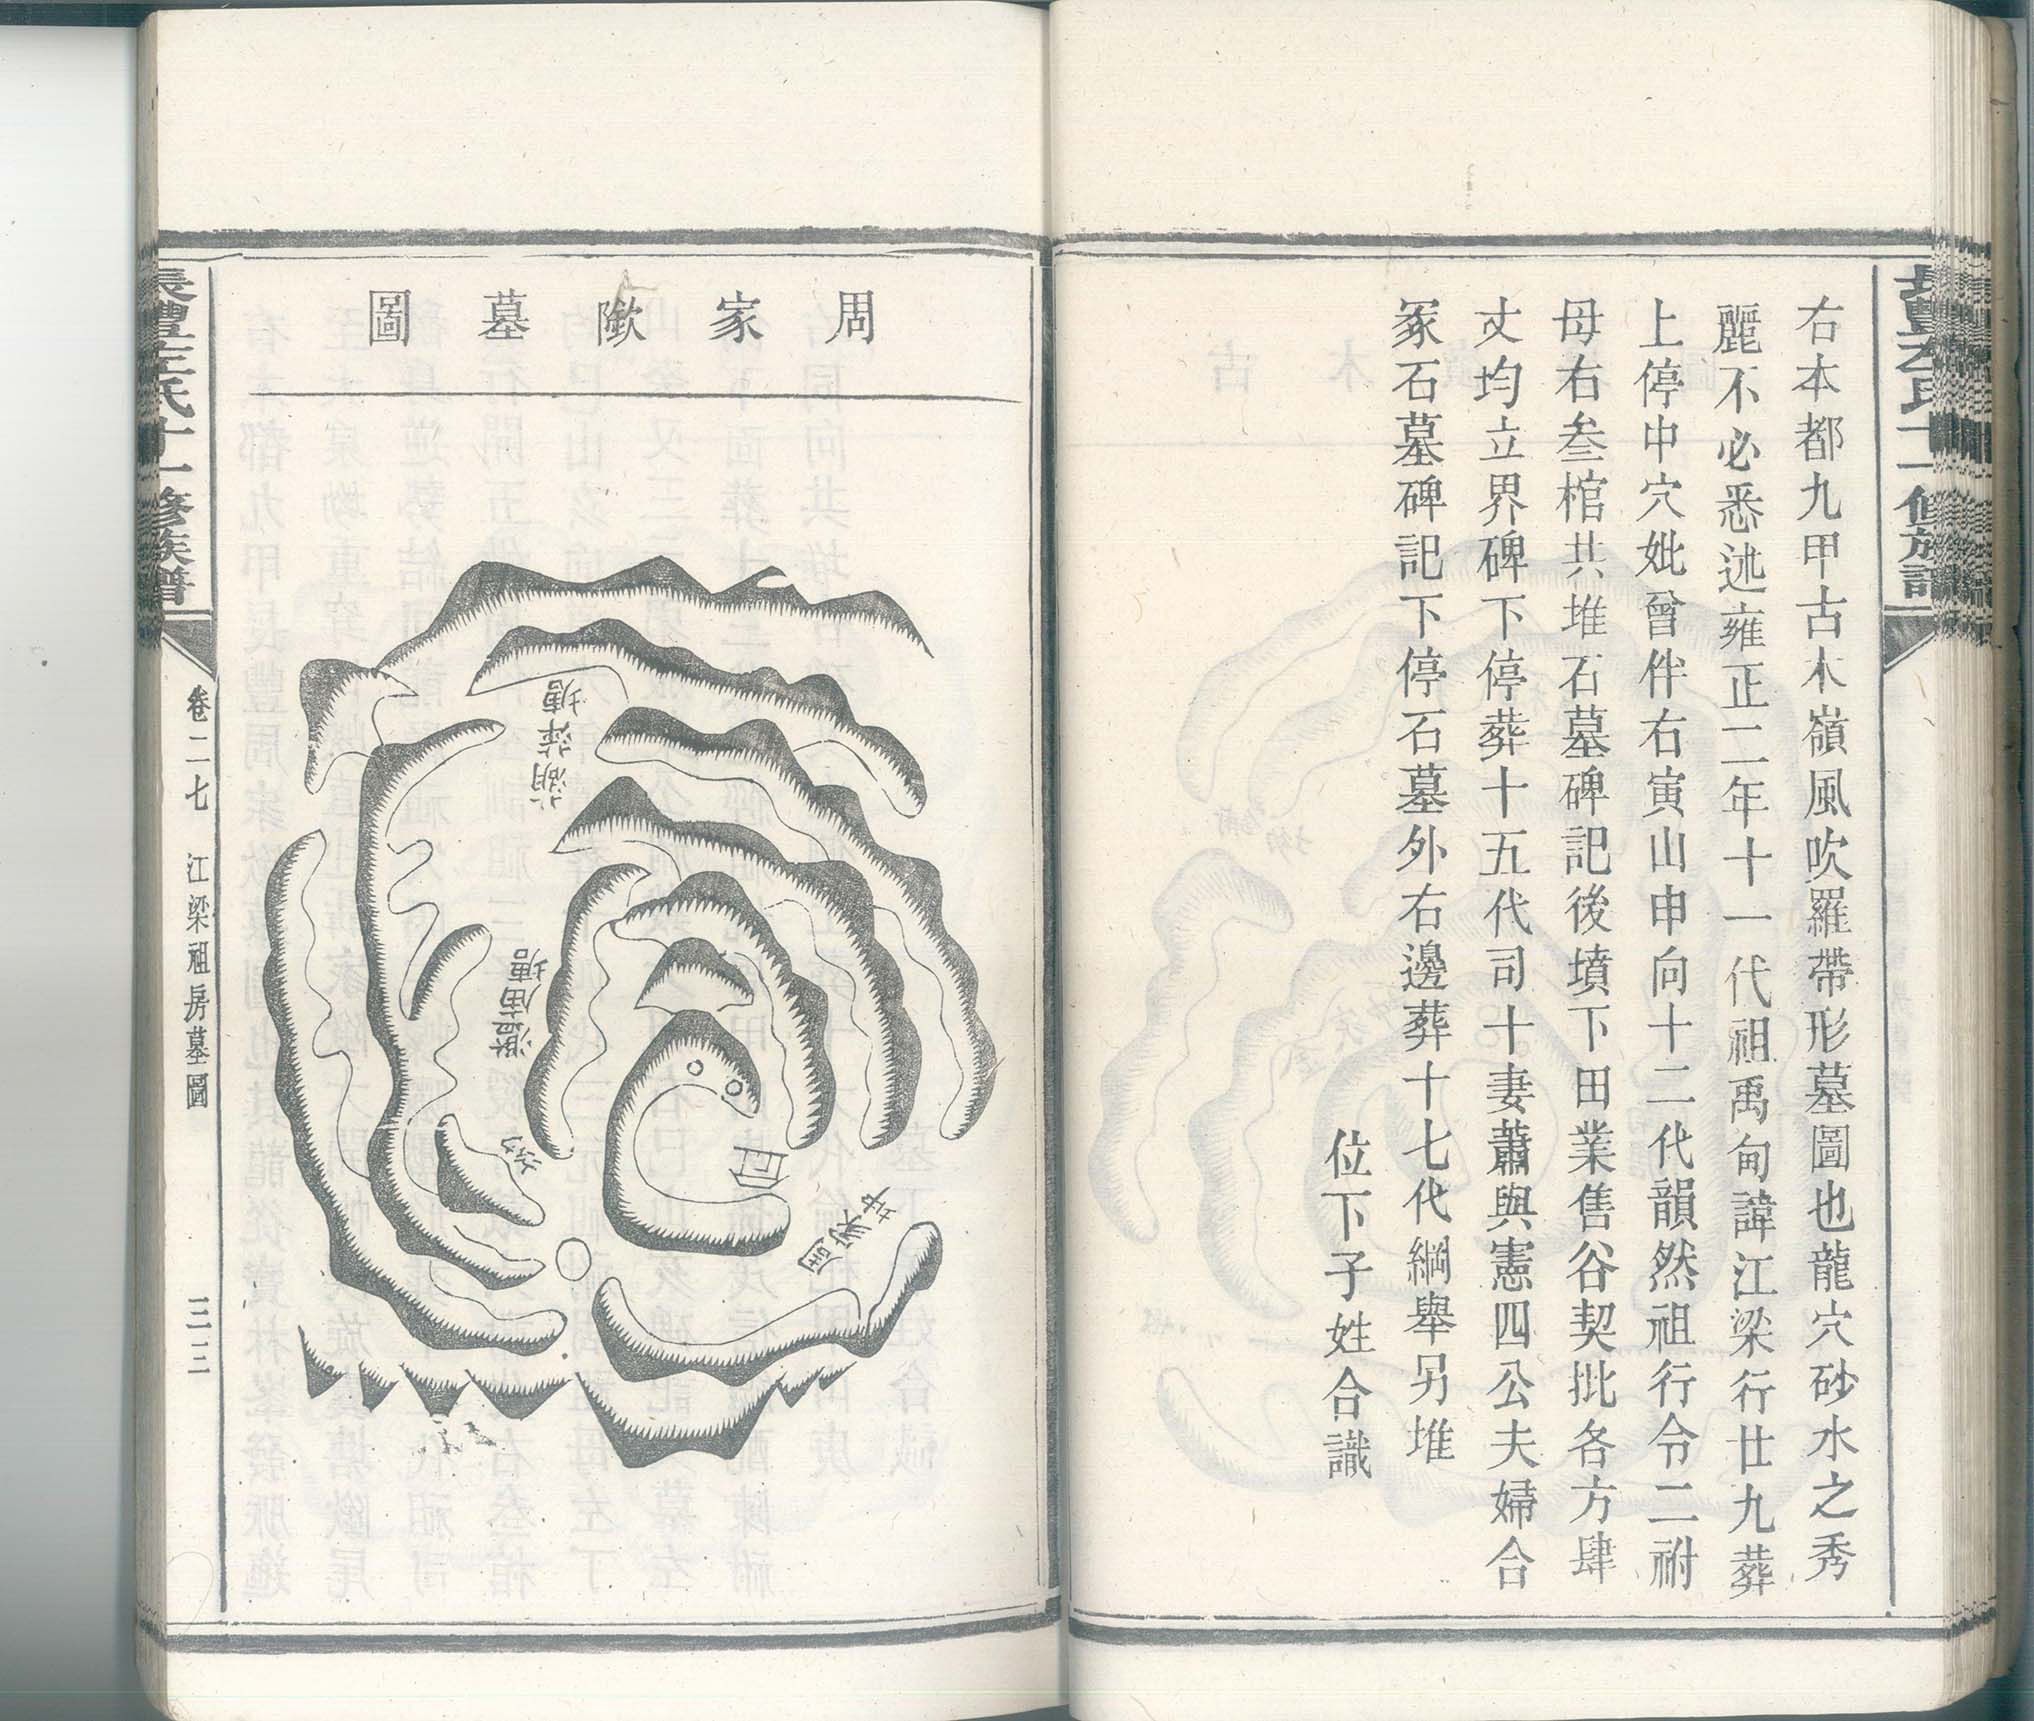 右本都九甲古木嶺風吹羅帶形墓圖也龍穴砂水之秀
麗不必悉述雍正二年十一代祖禹甸諱江梁行廿九葬
上停中穴妣曾伴右寅山申向十二代韻然祖行令二祔
母右叁棺共堆石墓碑記後墳下田業售谷契批各方肆
丈均立界碑下停葬十五代司十妻蕭與憲四公夫婦合
冢石墓碑記下停石墓外右邊葬十七代綱舉另堆
位下子姓合識
周家陂墓圖
湖萍塘
塘
卷二七 江梁祖房墓圖 三三
氏十一修族譜